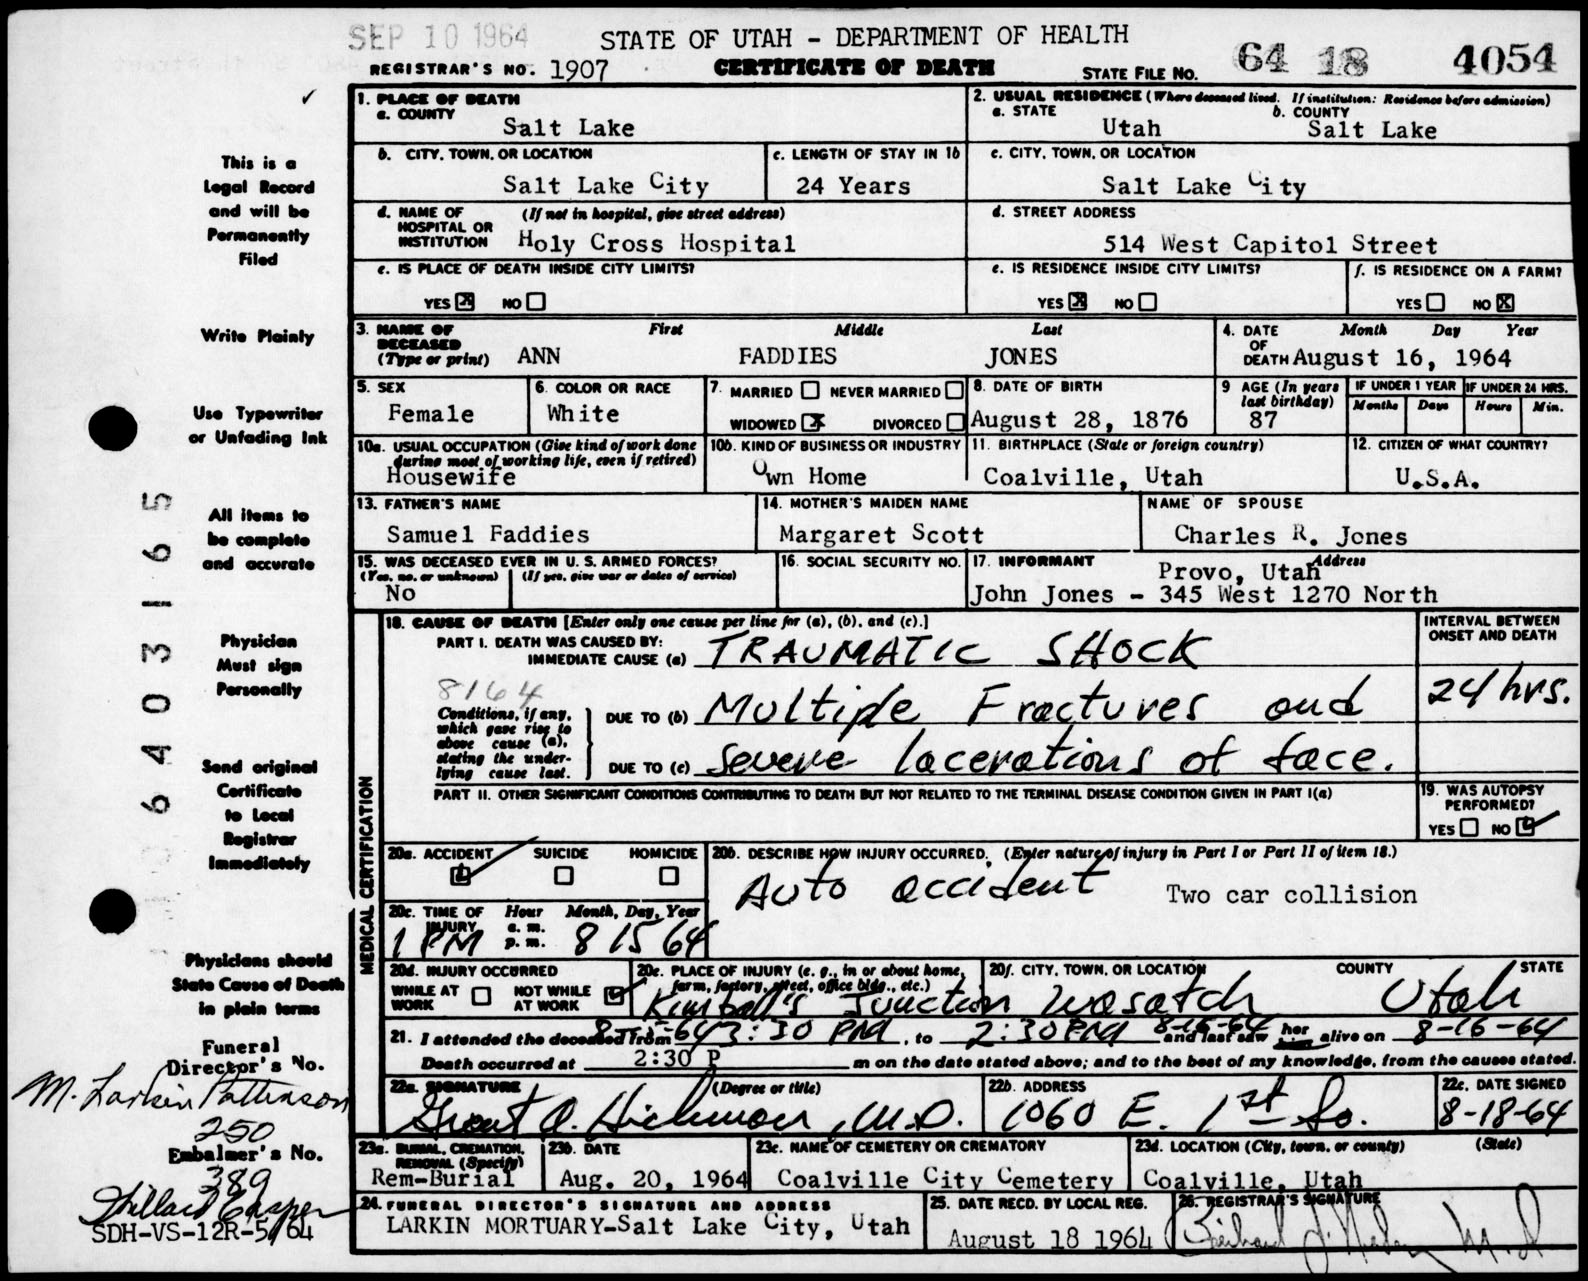 SEP 10 1964
STATE OF UTAH - DEPARTMENT OF HEALTH
REGISTRAR'S NO. 1907
CERTIFICATE OF DEATH
STATE FILE NO. 64 18 4054
This is a
Legal Record
and will be
Permanently
Filed
Write Plainly
Use Typewriter
or Unfading Ink
All items to
be complete
and accurate
Physician
Must sign
Personally
Send original
Certificate
to Local
Registrar
Immediately
Physicians should
State Cause of Death
in plain terms
Funeral
Director's No.
M. Larkin Patterson
250
Embalmer's No.
389
SDH-VS-12R-5/64
6403165
1. PLACE OF DEATH
a. COUNTY
Salt Lake
2. USUAL RESIDENCE (Where deceased lived. If institution: Residence before admission)
a. STATE b. COUNTY
Utah Salt Lake
b. CITY, TOWN, OR LOCATION
Salt Lake City
c. LENGTH OF STAY IN 1b
24 Years
c. CITY, TOWN, OR LOCATION
Salt Lake City
d. NAME OF (If not in hospital, give street address)
HOSPITAL OR
INSTITUTION Holy Cross Hospital
d. STREET ADDRESS
514 West Capitol Street
e. IS PLACE OF DEATH INSIDE CITY LIMITS?
YES X NO
e. IS RESIDENCE INSIDE CITY LIMITS?
YES X NO
f. IS RESIDENCE ON A FARM?
YES NO X
3. NAME OF First Middle Last
DECEASED
(Type or print) ANN FADDIES JONES
4. DATE Month Day Year
OF
DEATH August 16, 1964
5. SEX
Female
6. COLOR OR RACE
White
7. MARRIED NEVER MARRIED
WIDOWED X DIVORCED
8. DATE OF BIRTH
August 28, 1876
9 AGE (In years
last birthday)
87
IF UNDER 1 YEAR IF UNDER 24 HRS.
Months Days Hours Min.
10a. USUAL OCCUPATION (Give kind of work done
during most of working life, even if retired)
Housewife
10b. KIND OF BUSINESS OR INDUSTRY
Own Home
11. BIRTHPLACE (State or foreign country)
Coalville, Utah
12. CITIZEN OF WHAT COUNTRY?
U.S.A.
13. FATHER'S NAME
Samuel Faddies
14. MOTHER'S MAIDEN NAME
Margaret Scott
NAME OF SPOUSE
Charles R. Jones
15. WAS DECEASED EVER IN U. S. ARMED FORCES?
(Yes, no, or unknown) (If yes, give war or dates of service)
No
16. SOCIAL SECURITY NO.
17. INFORMANT Address
Provo, Utah
John Jones - 345 West 1270 North
MEDICAL CERTIFICATION
18. CAUSE OF DEATH [Enter only one cause per line for (a), (b), and (c).]
PART I. DEATH WAS CAUSED BY:
IMMEDIATE CAUSE (a) TRAUMATIC SHOCK
8164
Conditions, if any,
which gave rise to
above cause (a),
stating the under-
lying cause last.
DUE TO (b) Multiple Fractures and
DUE TO (c) severe lacerations of face.
INTERVAL BETWEEN
ONSET AND DEATH
24 hrs.
PART II. OTHER SIGNIFICANT CONDITIONS CONTRIBUTING TO DEATH BUT NOT RELATED TO THE TERMINAL DISEASE CONDITION GIVEN IN PART I(a)
19. WAS AUTOPSY
PERFORMED?
YES NO
20a. ACCIDENT SUICIDE HOMICIDE
20b. DESCRIBE HOW INJURY OCCURRED. (Enter nature of injury in Part I or Part II of item 18.)
Auto accident Two car collision
20c. TIME OF Hour Month, Day, Year
INJURY a. m.
p. m.
1 PM 8 15 64
20d. INJURY OCCURRED
WHILE AT NOT WHILE
WORK AT WORK
20e. PLACE OF INJURY (e. g., in or about home,
farm, factory, street, office bldg., etc.)
Kimball's Junction
20f. CITY, TOWN, OR LOCATION COUNTY STATE
Wasatch Utah
21. I attended the deceased from 8-15-64 3:30 PM, to 2:30 PM 8-16-64 and last saw her alive on 8-16-64
Death occurred at 2:30 P m on the date stated above; and to the best of my knowledge, from the causes stated.
22a. SIGNATURE (Degree or title)
Grant O. Hickman, M.D.
22b. ADDRESS
1060 E. 1st So.
22c. DATE SIGNED
8-18-64
23a. BURIAL, CREMATION,
REMOVAL (Specify)
Rem-Burial
23b. DATE
Aug. 20, 1964
23c. NAME OF CEMETERY OR CREMATORY
Coalville City Cemetery
23d. LOCATION (City, town, or county) (State)
Coalville, Utah
24. FUNERAL DIRECTOR'S SIGNATURE AND ADDRESS
LARKIN MORTUARY-Salt Lake City, Utah
25. DATE RECD. BY LOCAL REG.
August 18 1964
26. REGISTRAR'S SIGNATURE